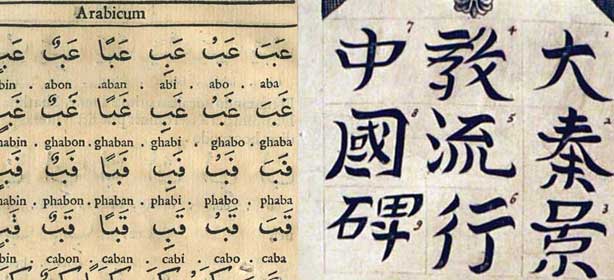 Arabicum
عَبَ عَبُ عَبِ عَبًا عَبٌ
bin . abon . aban . abi . abo . aba
غَبَ غَبُ غَبِ غَبًا غَبٌ
habin . ghabon . ghaban . ghabi . ghabo . ghaba
فَبَ فَبُ فَبِ فَبًا فَبٌ
habin . phabon . phaban . phabi . phabo . phaba
قَبَ قَبُ قَبِ قَبًا قَبٌ
bin . cabon . caban . cabi . cabo . caba
大1秦2景3
教4流5行6
中7國8碑9